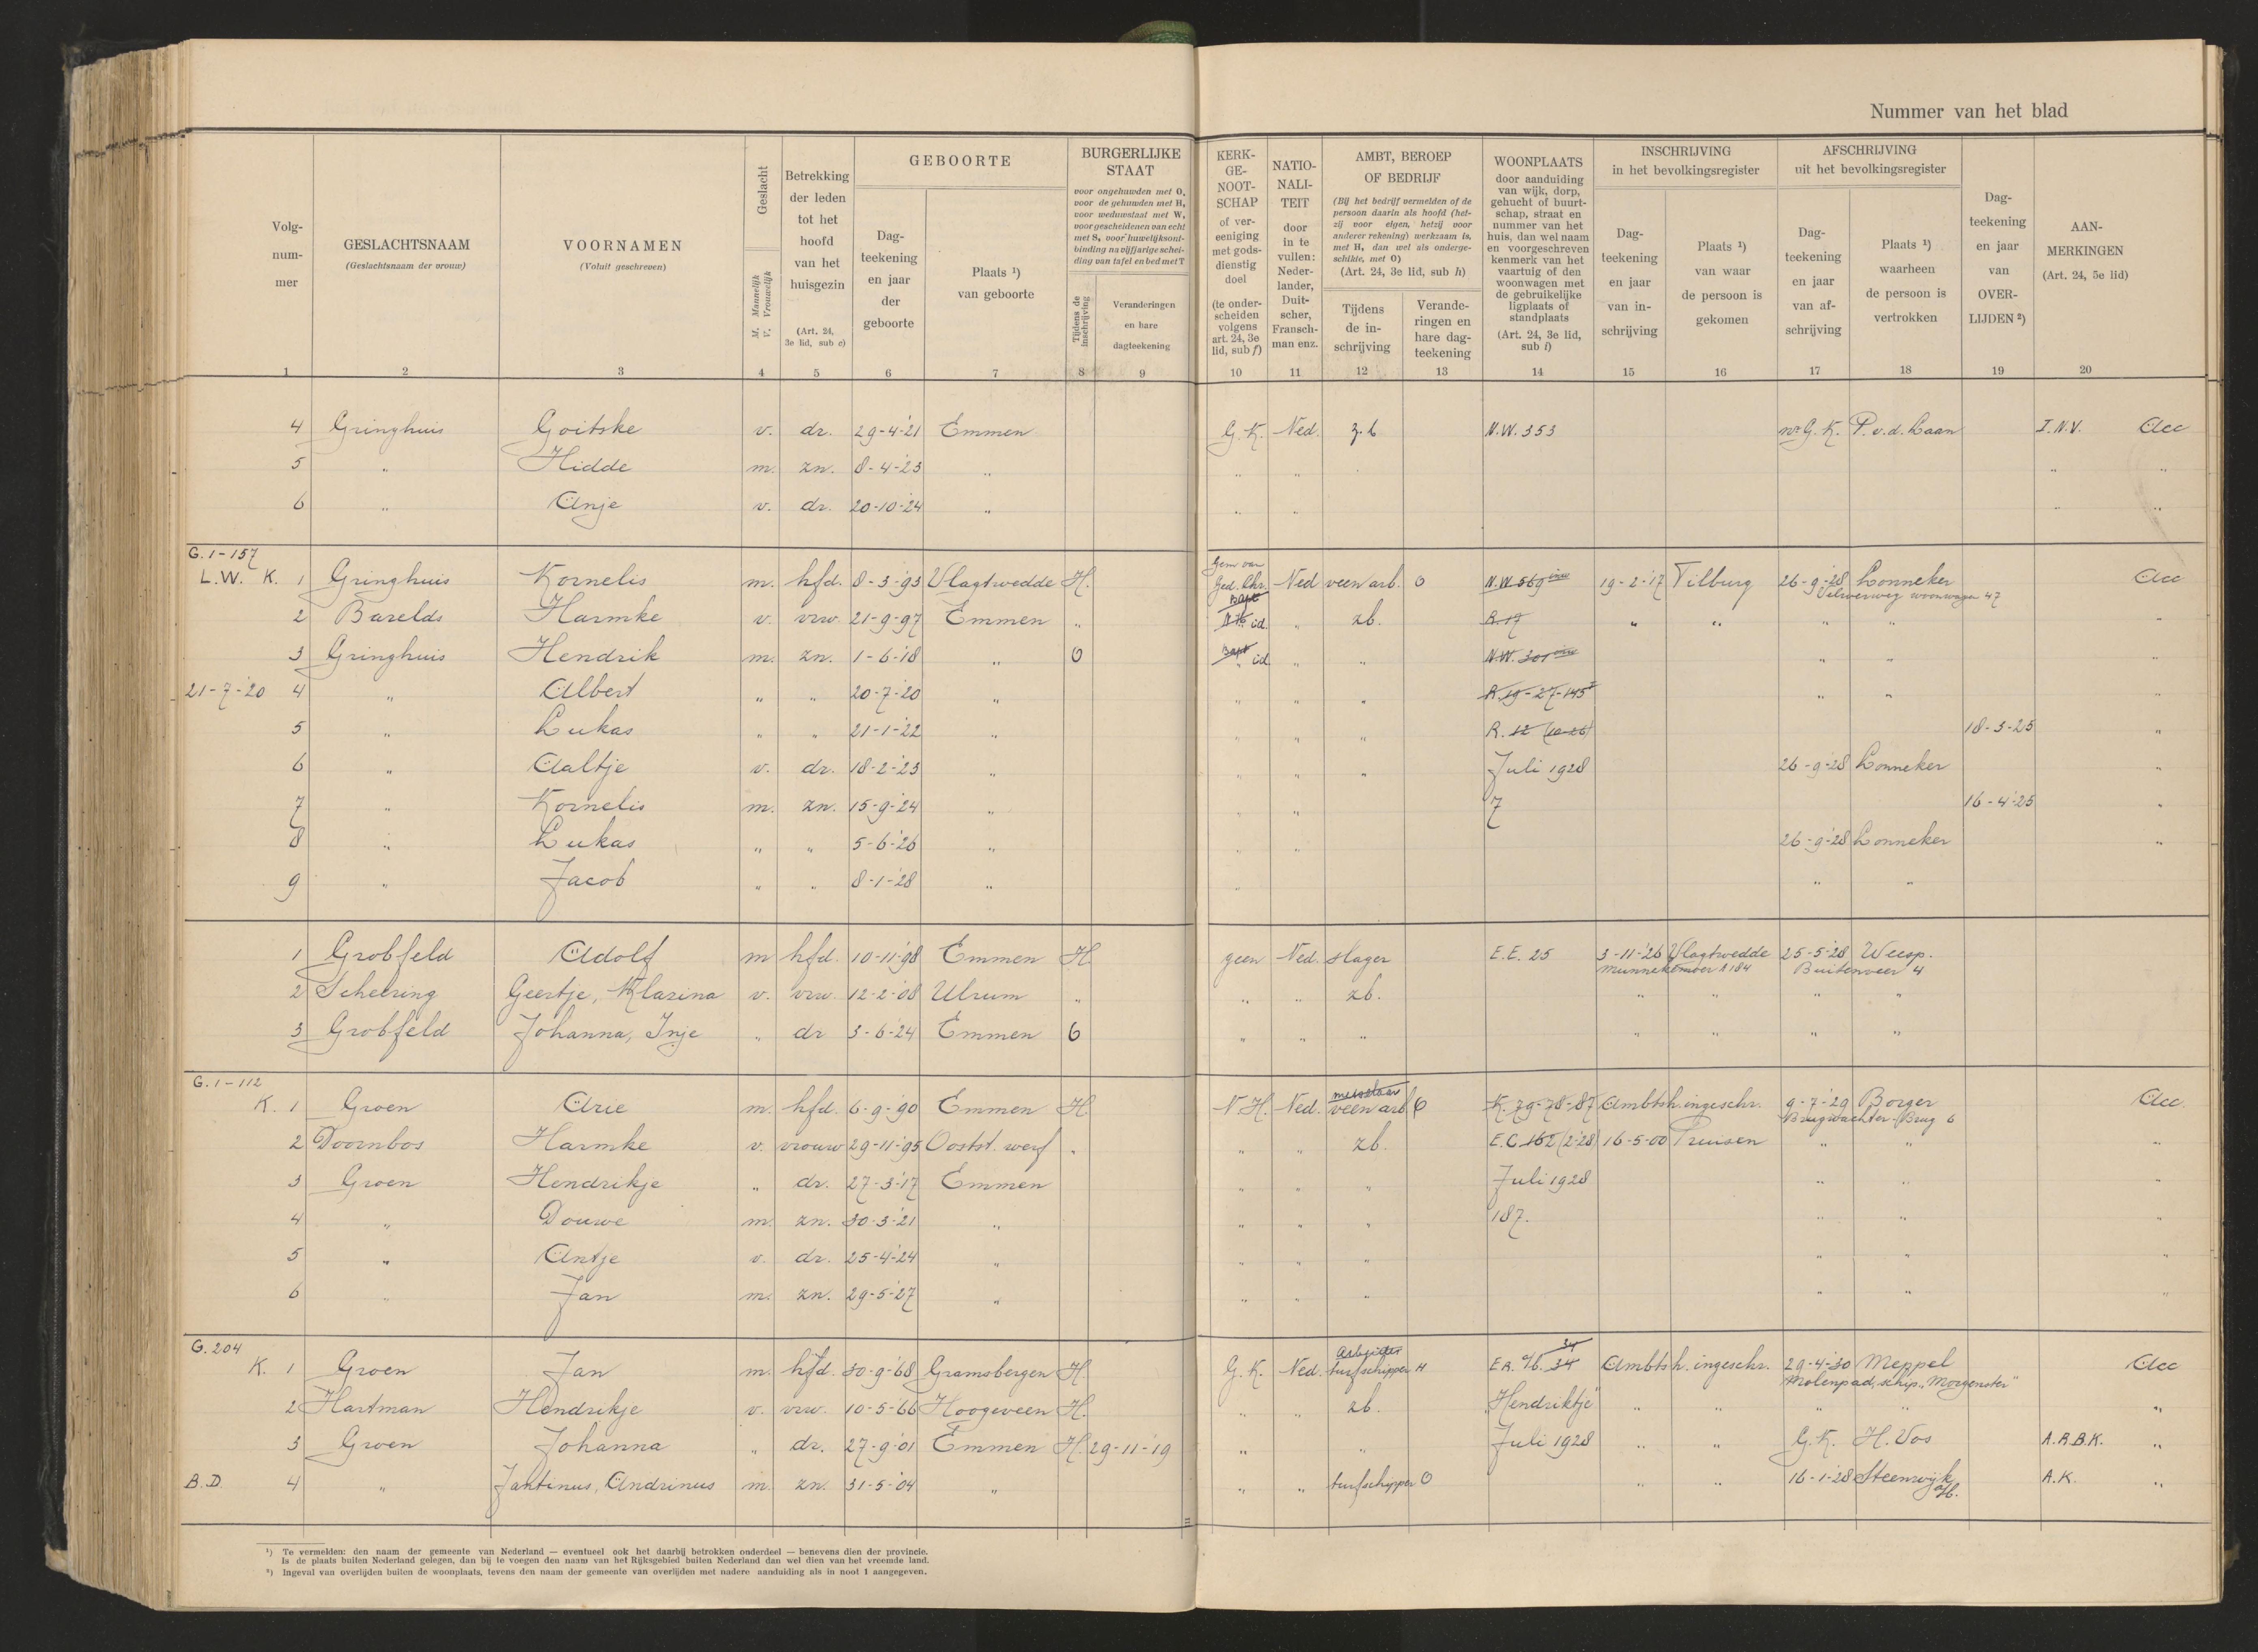 Nummer van het blad
Volg-nummer
GESLACHTSNAAM
(Geslachtsnaam der vrouw)
VOORNAMEN
(Voluit geschreven)
Geslacht
M. Mannelijk
V. Vrouwelijk
Betrekking der leden tot het hoofd van het huisgezin
(Art. 24, 3e lid, sub c)
GEBOORTE
Dag-teekening en jaar der geboorte
Plaats ¹) van geboorte
BURGERLIJKE STAAT
voor ongehuwden met O,
voor de gehuwden met H,
voor weduwstaat met W,
voor gescheidenen van echt
met S, voor huwelijksont-
binding na vijfjarige schei-
ding van tafel en bed met T
Tijdens de inschrijving
Veranderingen en hare dagteekening
KERK-GE-NOOT-SCHAP
of ver-eeniging met gods-dienstig doel
(te onder-scheiden volgens art. 24, 3e lid, sub f)
NATIO-NALI-TEIT
door in te vullen: Neder-lander, Duit-scher, Fransch-man enz.
AMBT, BEROEP OF BEDRIJF
(Bij het bedrijf vermelden of de
persoon daarin als hoofd (het-
zij voor eigen, hetzij voor
anderer rekening) werkzaam is,
met H, dan wel als onderge-
schikte, met O)
(Art. 24, 3e lid, sub h)
Tijdens de in-schrijving
Verande-ringen en hare dag-teekening
WOONPLAATS
door aanduiding
van wijk, dorp,
gehucht of buurt-
schap, straat en
nummer van het
huis, dan wel naam
en voorgeschreven
kenmerk van het
vaartuig of den
woonwagen met
de gebruikelijke
ligplaats of
standplaats
(Art. 24, 3e lid, sub i)
INSCHRIJVING in het bevolkingsregister
Dag-teekening en jaar van in-schrijving
Plaats ¹) van waar de persoon is gekomen
AFSCHRIJVING uit het bevolkingsregister
Dag-teekening en jaar van af-schrijving
Plaats ¹) waarheen de persoon is vertrokken
Dag-teekening en jaar van OVER-LIJDEN ²)
AAN-MERKINGEN
(Art. 24, 5e lid)
1 2 3 4 5 6 7 8 9 10 11 12 13 14 15 16 17 18 19 20
4 Gringhuis Goitske v. dr. 29-4-'21 Emmen G.K. Ned. z.b N.W. 353 G.K. P.v.d. Laan I.N.V. Acc
5 " Hidde m. zn. 8-4-'23 " " " " "
6 " Anje v. dr. 20-10-'24 " " " " "
G. 1-157
L.W. K. 1 Gringhuis Kornelis m. hfd. 8-3-'93 Vlagtwedde H. Ged. Chr. Ned veenarb. O N.W. 569 19-2-'17 Tilburg 26-9-'28 Lonneker Acc
woonwagen 47
2 Barelds Harmke v. vrw. 21-9-'97 Emmen " Bapt id. " zb. R. 17 " " " " "
3 Gringhuis Hendrik m. zn. 1-6-'18 " O Bapt id " " N.W. 301 " " "
21-7-'20 4 " Albert " " 20-7-'20 " " " " R. 19-27-145 " " "
5 " Lukas " " 21-1-'22 " " " " R. 12 18-3-25 "
6 " Aaltje v. dr. 18-2-'23 " " " " Juli 1928 26-9-'28 Lonneker "
7 " Kornelis m. zn. 15-9-'24 " " " 7 16-4-'25 "
8 " Lukas " " 5-6-'26 " " " 26-9-'28 Lonneker "
9 " Jacob " " 8-1-'28 " " " "
1 Grobfeld Adolf m hfd. 10-11-'98 Emmen H geen Ned. slager E.E. 25 3-11-'26 Vlagtwedde 25-5-'28 Weesp.
Munnekemoer A 184 Buitenveer 4
2 Scheering Geertje, Klazina v. vrw. 12-2-'08 Ulrum " " " zb. " " " "
3 Grobfeld Johanna, Inje " dr 3-6-'24 Emmen O " " " " " " "
G. 1-112
K. 1 Groen Arie m. hfd. 6-9-'90 Emmen H. N.H. Ned. veenarb O K. 79-78-87 Ambtsh. ingeschr. 9-7-'29 Borger Acc
Brugwachter Brug 6
2 Doornbos Harmke v. vrouw 29-11-'95 Oostst. werf " " " zb. E.C. 16-5-00 Pruisen " " "
3 Groen Hendrikje " dr. 27-3-'17 Emmen " " " Juli 1928 " " "
4 " Douwe m. zn. 30-3-'21 " " " " 187. " " "
5 " Antje v. dr. 25-4-'24 " " " " " " "
6 " Jan m. zn. 29-5-'27 " " " " " " "
G. 204
K. 1 Groen Jan m. hfd. 30-9-'68 Gramsbergen H. G.K. Ned. arbeider turfschipper H E.A. 34 34 Ambtsh. ingeschr. 29-4-'30 Meppel Acc
Molenpad, schip "Morgenster"
2 Hartman Hendrikje v. vrw. 10-5-'66 Hoogeveen H. " " zb. "Hendriktje" " " " " "
3 Groen Johanna " dr. 27-9-'01 Emmen H. 29-11-'19 " " Juli 1928 " " G.K. H. Vos A.R.B.K. "
B.D. 4 " Jantinus, Andrinus m. zn. 31-5-'04 " " " turfschipper O " " 16-1-'28 Steenwijk A.K. "
¹) Te vermelden: den naam der gemeente van Nederland — eventueel ook het daarbij betrokken onderdeel — benevens dien der provincie.
Is de plaats buiten Nederland gelegen, dan bij te voegen den naam van het Rijksgebied buiten Nederland dan wel dien van het vreemde land.
²) Ingeval van overlijden buiten de woonplaats, tevens den naam der gemeente van overlijden met nadere aanduiding als in noot 1 aangegeven.